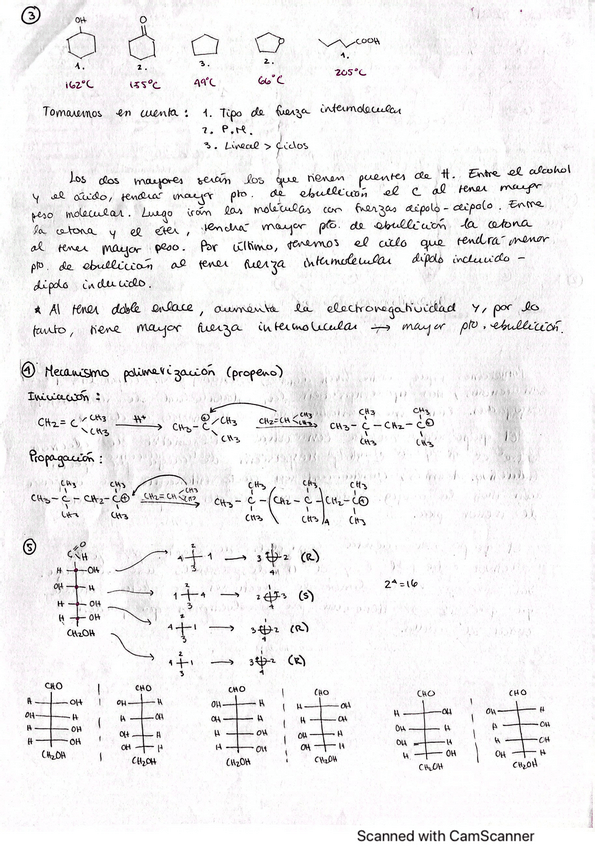 3
OH O
COOH
1. 2. 3. 2. 1.
162°C 155°C 49°C 66°C 205°C
Tomaremos en cuenta : 1. Tipo de fuerza intermolecular
2. P.M.
3. Lineal > Ciclos
Los dos mayores serán los que tienen puentes de H. Entre el alcohol
y el ácido, tendrá mayor pto. de ebullición el C al tener mayor
peso molecular. Luego irán las moléculas con fuerzas dipolo-dipolo. Entre
la cetona y el éter, tendrá mayor pto. de ebullición la cetona
al tener mayor peso. Por último, tenemos el ciclo que tendrá menor
pto. de ebullición al tener fuerza intermolecular dipolo inducido -
dipolo inducido.
* Al tener doble enlace, aumenta la electronegatividad y, por lo
tanto, tiene mayor fuerza intermolecular → mayor pto. ebullición.
4 Mecanismo polimerización (propeno)
Iniciación :
CH2 = C CH3 CH3 H+ CH3 - C ⊕ CH3 CH3 CH2=CH CH3 CH3 CH3 - C - CH2 - C ⊕ CH3 CH3 CH3 CH3
Propagación :
CH3 - C - CH2 - C ⊕ CH3 CH3 CH3 CH3 CH2=CH CH3 CH3 CH3 - C - ( CH2 - C ) - CH2 - C ⊕ CH3 CH3 CH3 CH3 CH3 CH3
5
C O H
H OH
OH H
H OH
H OH
CH2OH
(R)
(S)
(R)
(R)
2^4=16
CHO CHO CHO CHO CHO CHO
H OH OH H OH H H OH H OH OH H
OH H H OH OH H H OH H OH OH H
H OH OH H
H OH OH H
CH2OH CH2OH CH2OH CH2OH CH2OH CH2OH
Scanned with CamScanner